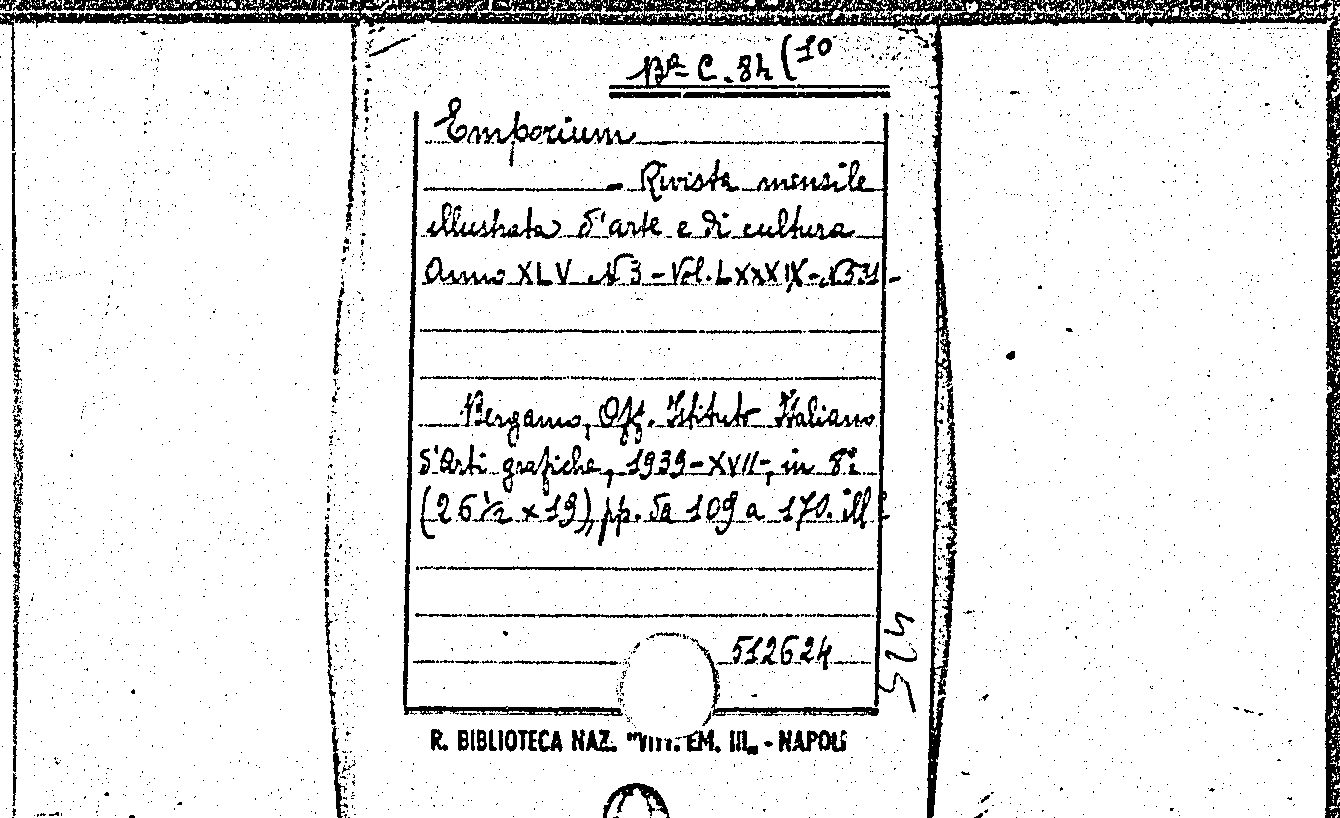 Bª C. 84 (10
Emporium
- Rivista mensile
illustrata d'arte e di cultura
Anno XLV N 3 - Vol. LXXXIX - N 531 -
Bergamo, Off. Istituto Italiano
d'Arti grafiche, 1939 - XVII -, in 8º
(26 ½ x 19), pp. da 109 a 170. ill.
512624
524
R. BIBLIOTECA NAZ. "VITT. EM. III„ - NAPOLI